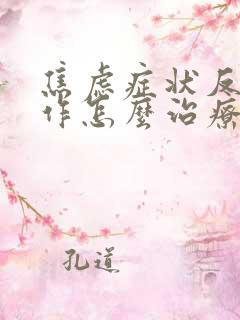 焦虑症状反
作怎麼治療
孔道